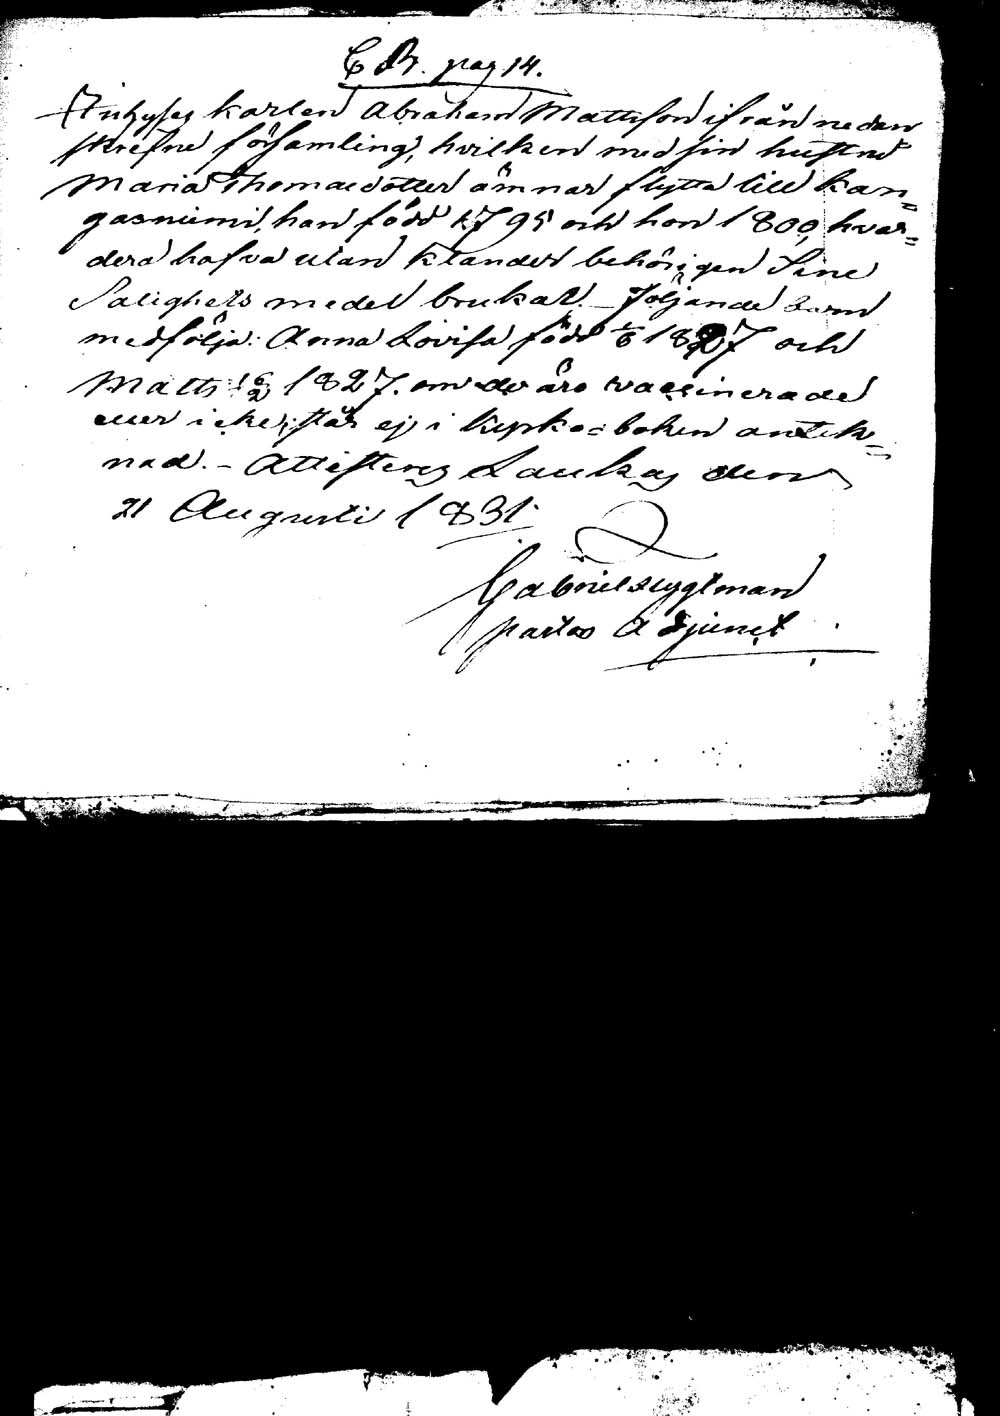 C B. pag 14.
Inhyses karlen Abraham Mattsson ifrån nedan
skrefne församling, hvilken med sin hustru
Maria Thomasdotter ämnar flytta till Kan=
gasniemi, han född 1795 och hon 1800, hvar=
dera hafva utan klander behörigen Sine
Salighets medel brukat. Följande barn
medfölja: Anna Lovisa född 1827 och
Matts 1827. om de äro vaccinerade
eller icke, står ej i kyrko=boken anteck=
nad. – Attesteras Laukas den
21 Augusti 1831.
Gabriel
pastors Adjunct